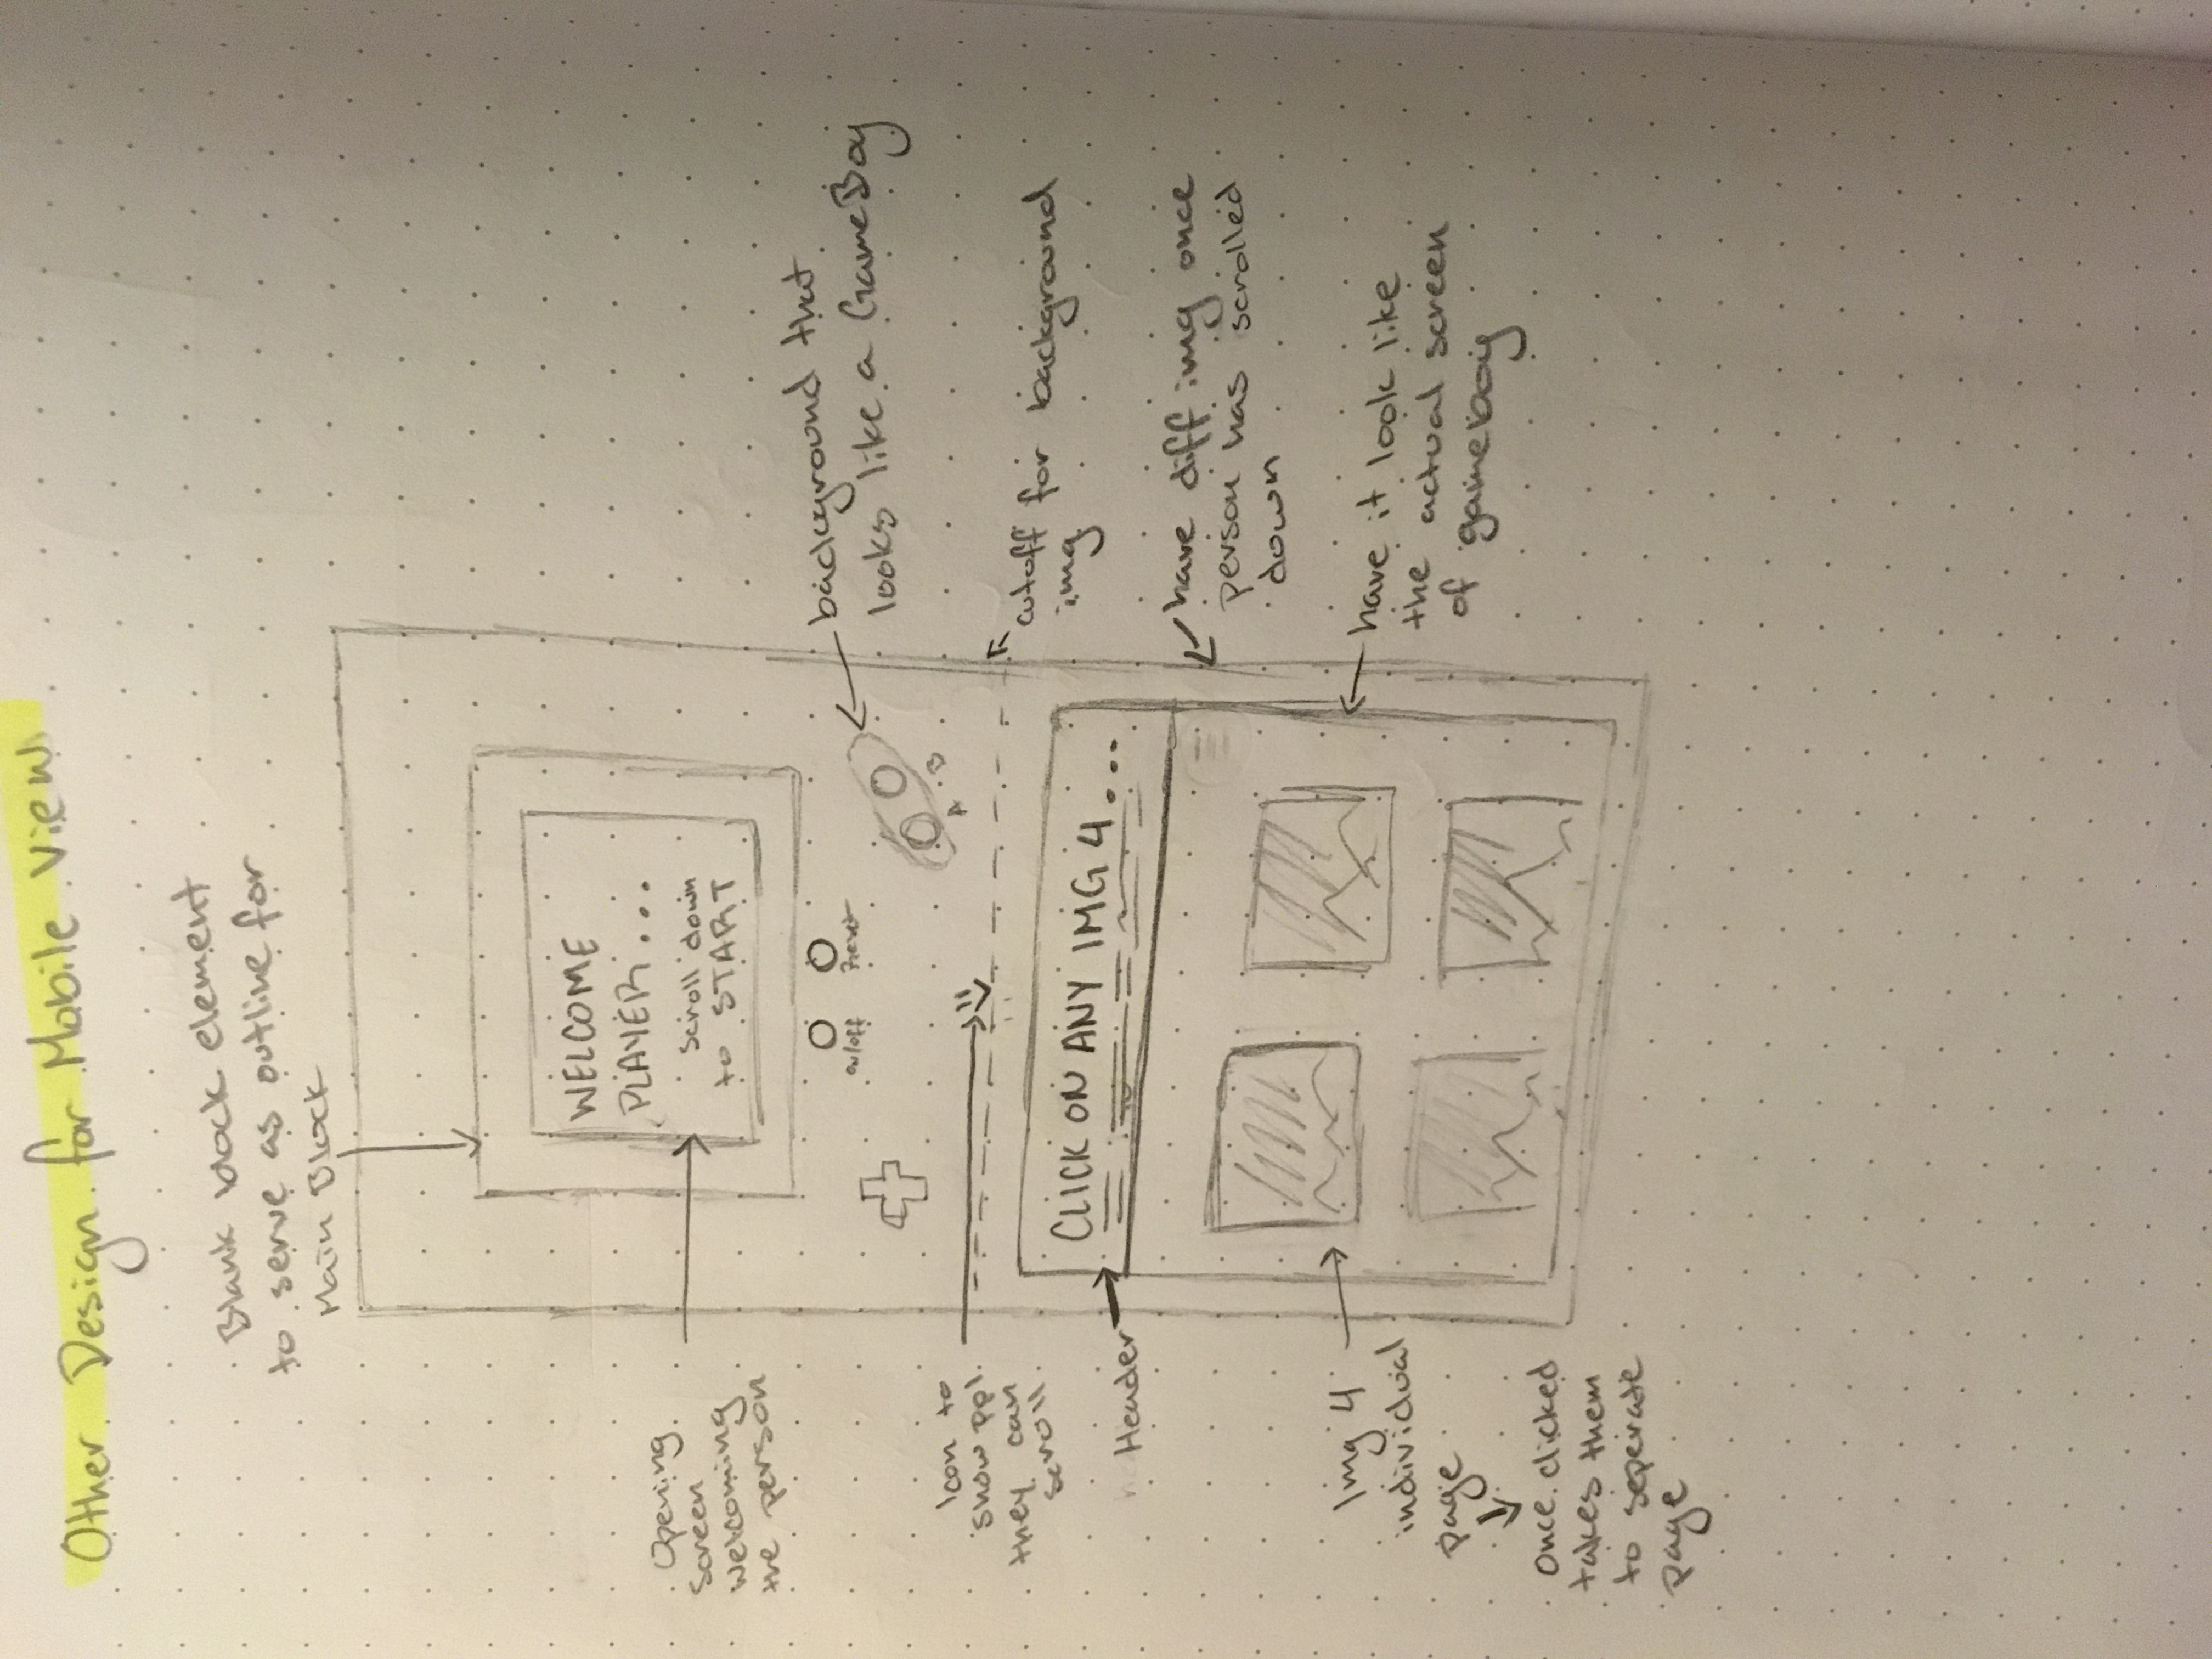 Other Design for Mobile View
Blank block element
to serve as outline for
Main Block
WELCOME
PLAYER...
scroll down
to START
Opening
screen
welcoming
the person
on/off
Reset
A B
background that
looks like a GameBoy
Icon to
show ppl.
they can
scroll.
cutoff for background
img
CLICK ON ANY IMG 4...
Header
have diff img once
person has scrolled
down
Img 4
individual
page
once clicked
takes them
to seperate
page
have it look like
the actual screen
of gameboy